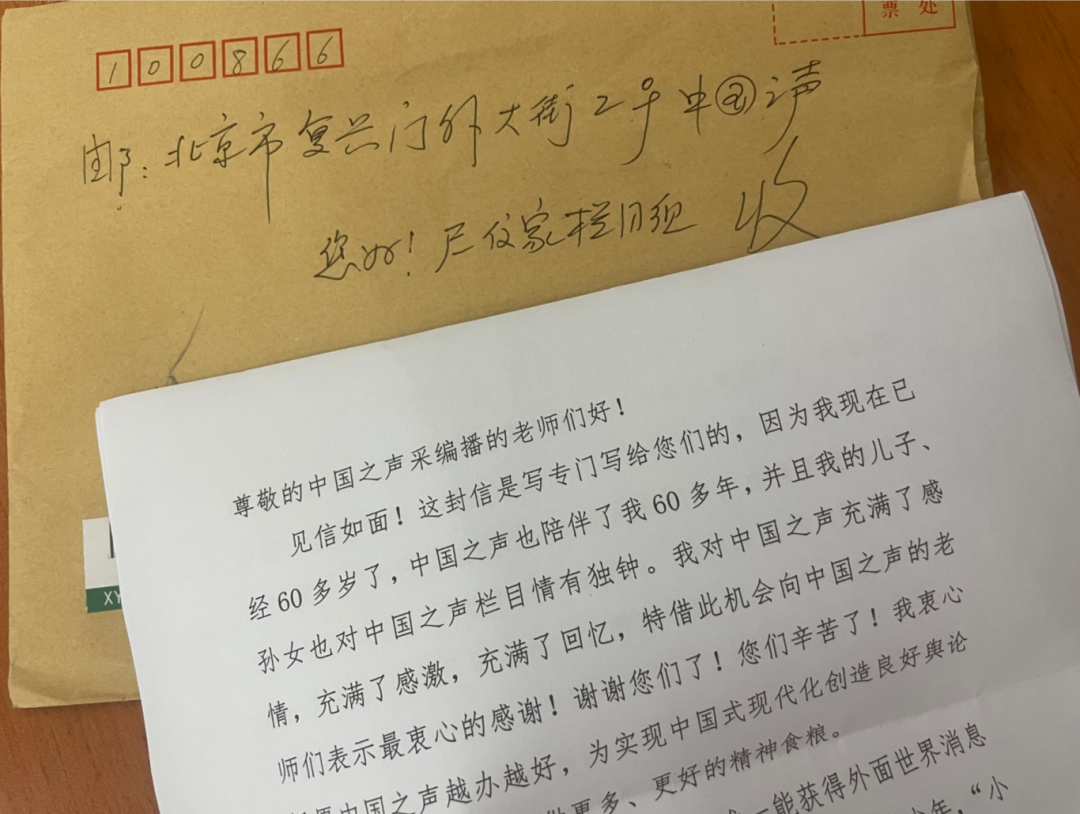 票 处
100866
邮：北京市复兴门外大街2号中国之声
您好！尺仪家栏目组 收
XY
尊敬的中国之声采编播的老师们好！
见信如面！这封信是写专门写给您们的，因为我现在已
经60多岁了，中国之声也陪伴了我60多年，并且我的儿子、
孙女也对中国之声栏目情有独钟。我对中国之声充满了感
情，充满了感激，充满了回忆，特借此机会向中国之声的老
师们表示最衷心的感谢！谢谢您们了！您们辛苦了！我衷心
中国之声越办越好，为实现中国式现代化创造良好舆论
更多、更好的精神食粮。
能获得外面世界消息
年，“小